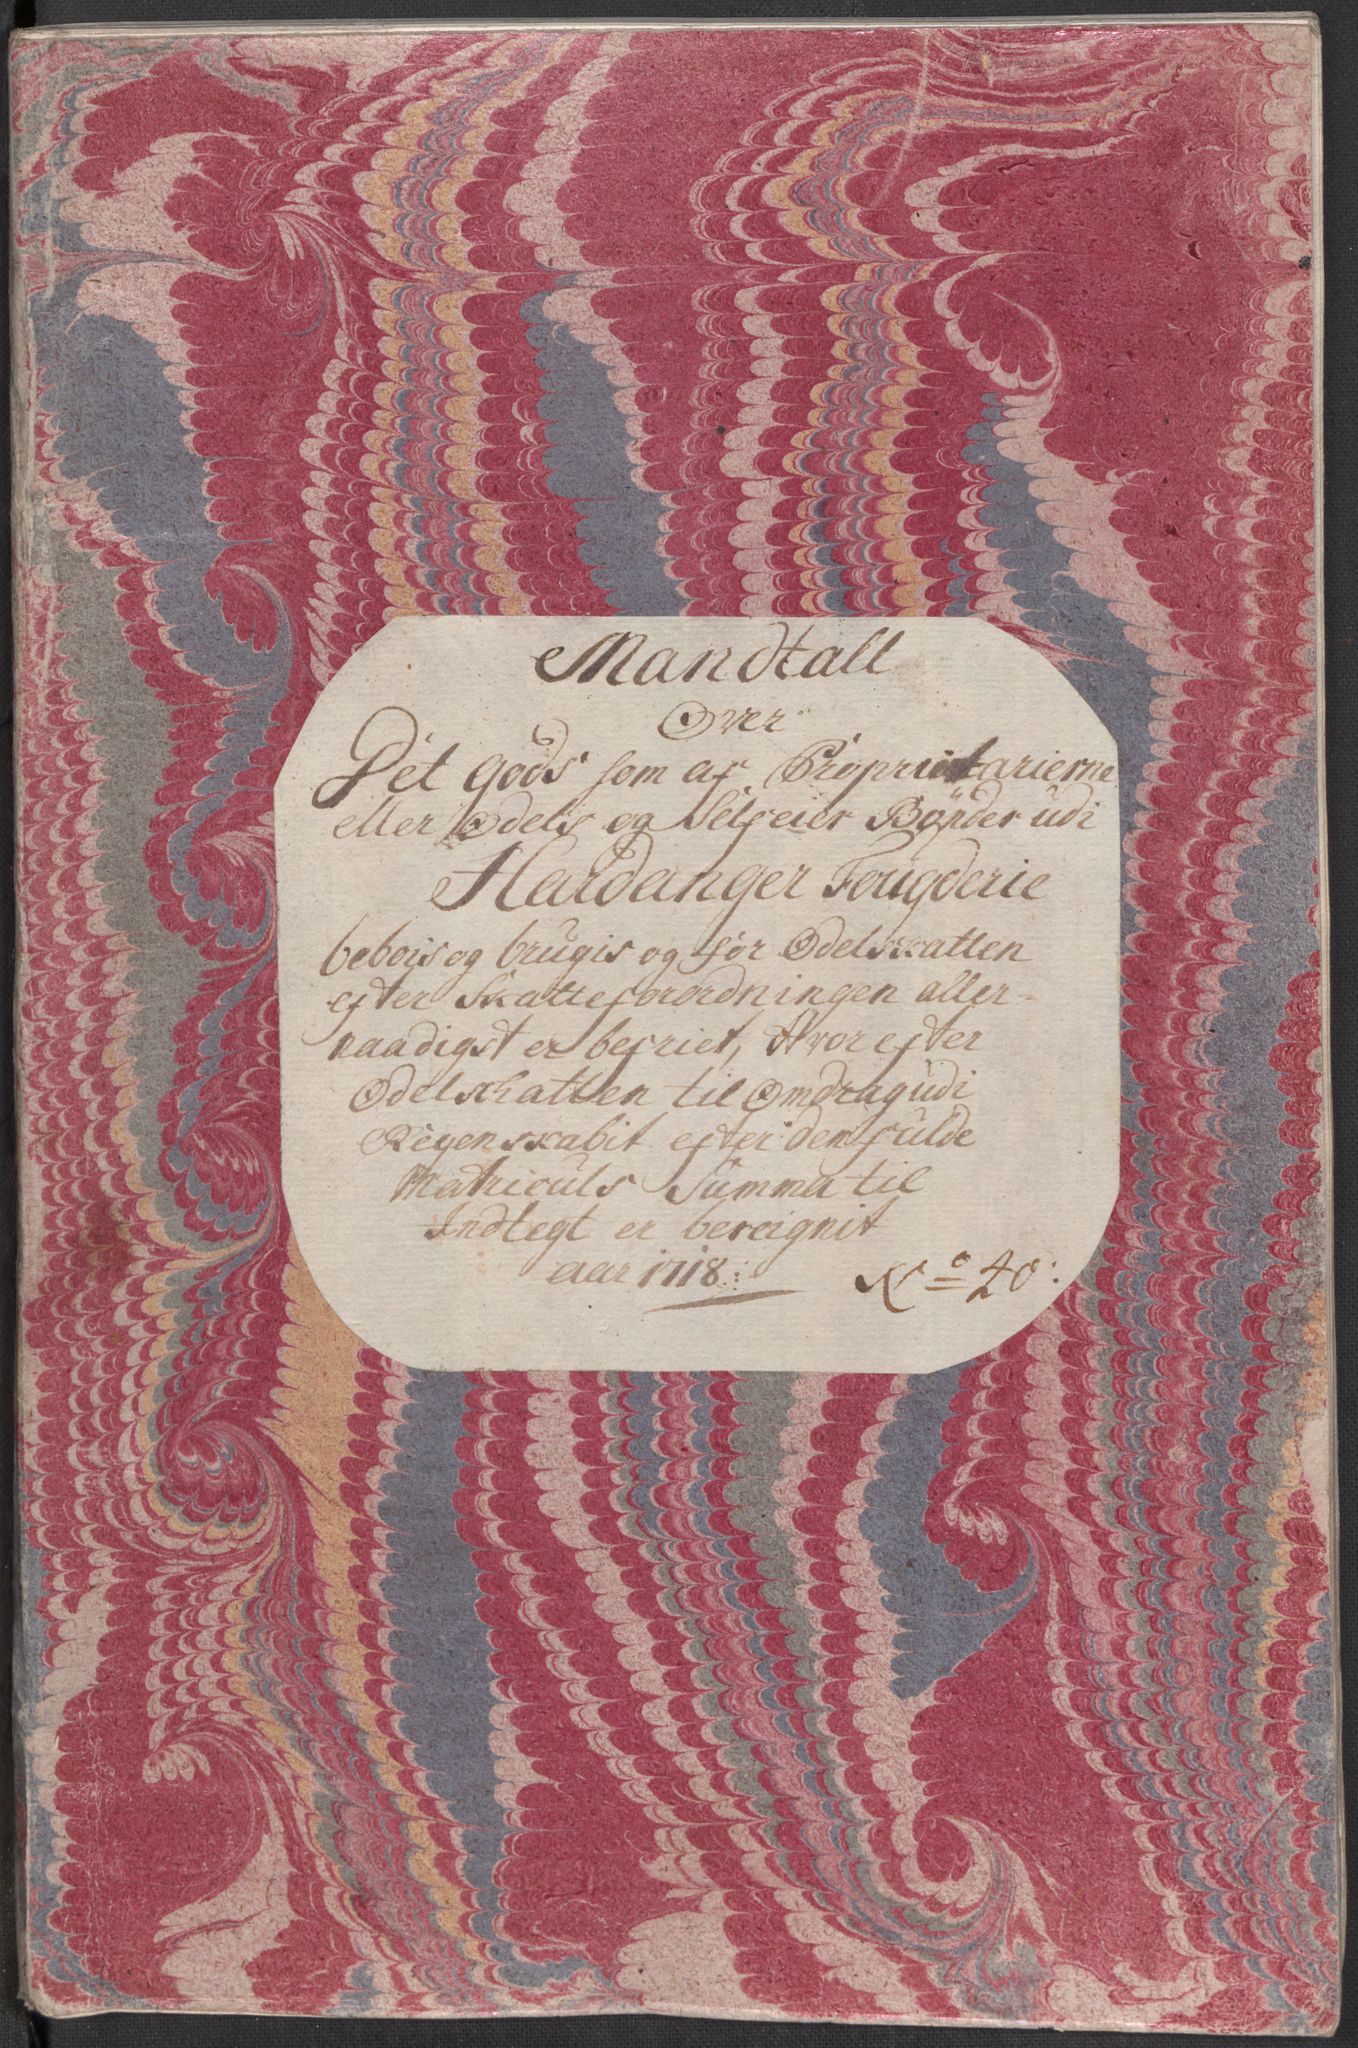 Mandtall
Over
Det gods som af Proprietarierne
eller Odels og Selfeier Bønder udi
Hardanger Fougderie
bebois og brugis og for Odelskatten
efter Skatteforordningen aller-
naadigst er befriet, Hvorefter
Odelskatten til Omdrag udi
Regenskabit efter den fulde
Matriculs Summa til
Indtegt er bereignit
aar 1718: No 20: